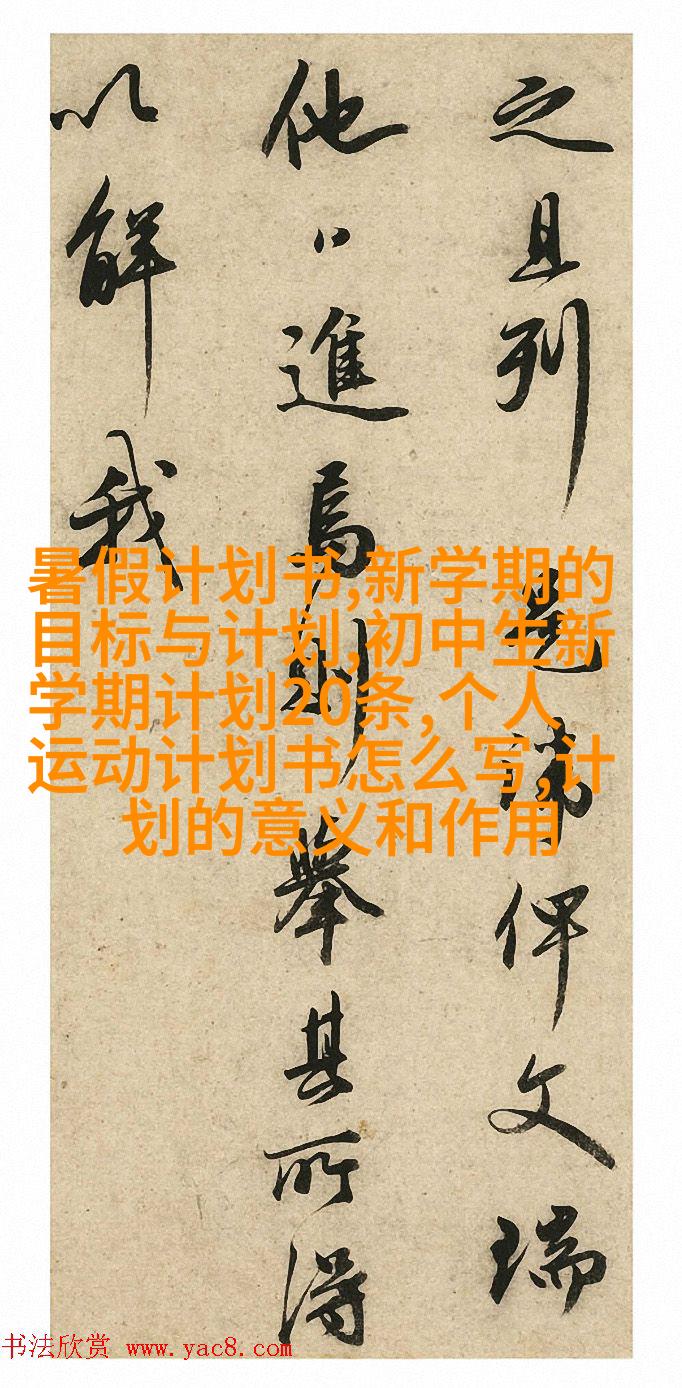 之且列是俾文瑞
他日進焉則舉其所得
以解我
暑假计划书,新学期的
目标与计划,初中生新
学期计划20条,个人
运动计划书怎么写,计
划的意义和作用
书法欣赏 www.yac8.com